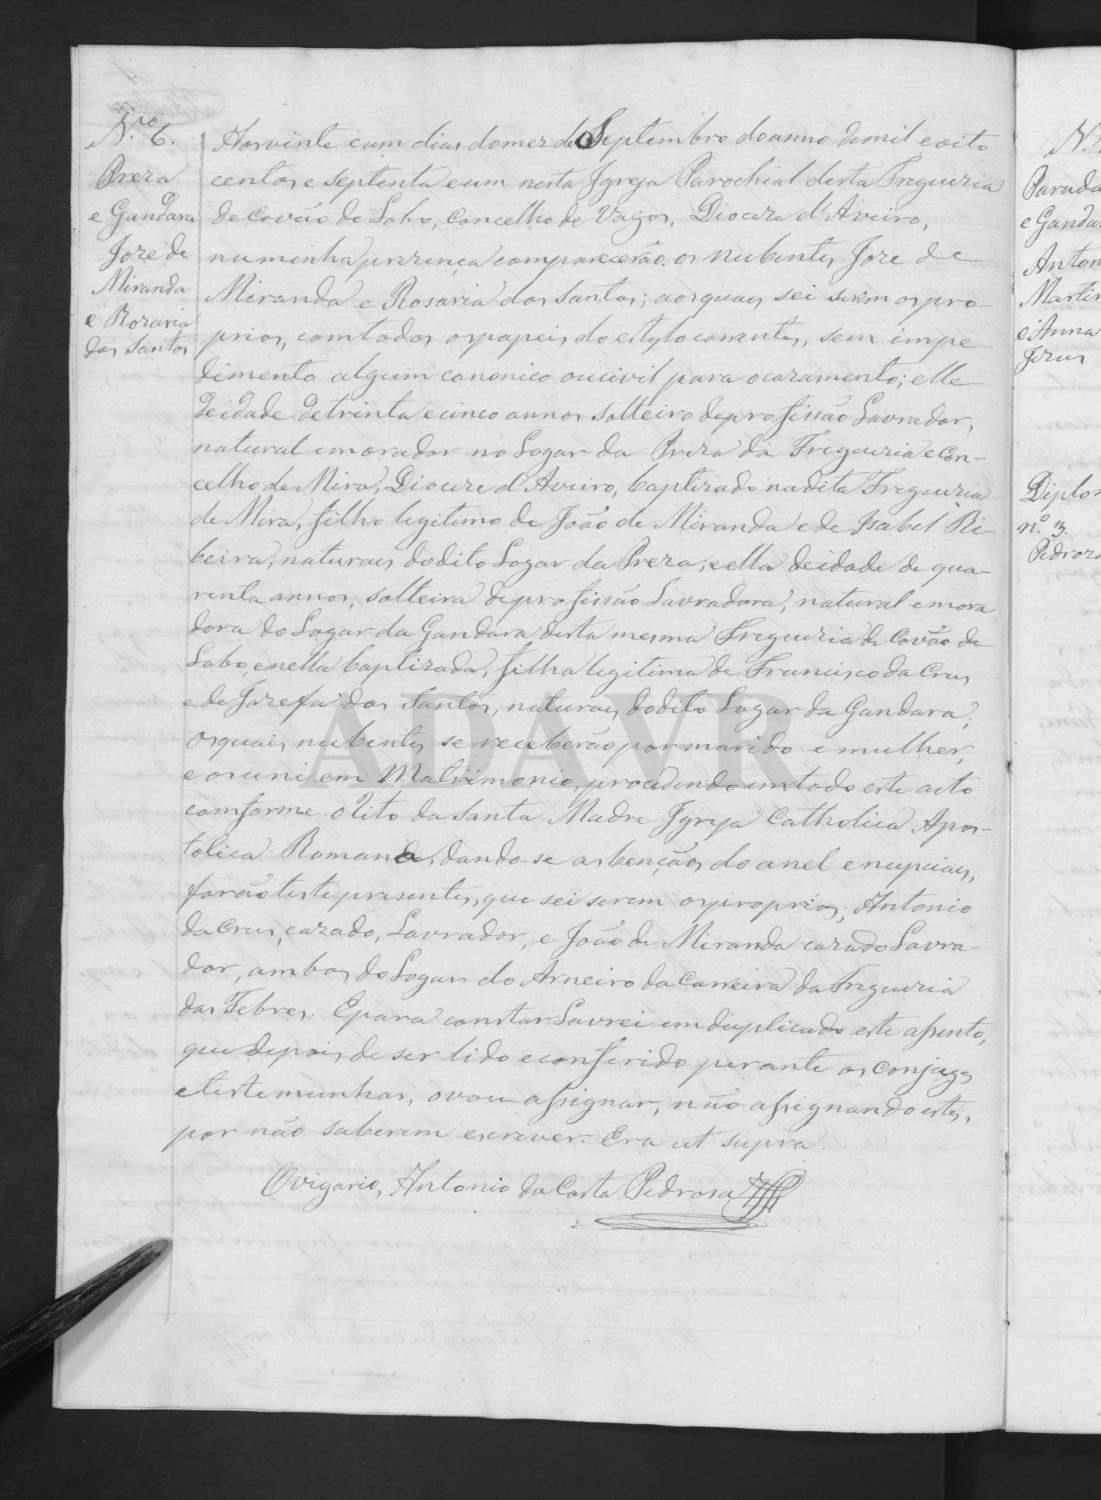 N.ro 6.
Preza
e Gandara
Joze de
Miranda
e Rozaria
dos Santos
Aos vinte e um dias do mez de Septembro do anno de mil e oito
centos e septenta e um nesta Igreja Parochial desta Freguezia
de Covão de Lobo, Concelho de Vagos, Dioceze d'Aveiro,
na minha prezença comparecerão os nubentes Joze de
Miranda e Rosaria dos Santos; aos quaes sei serem os pro-
prios, com todos os papeis do estylo correntes, sem impe
dimento algum canonico ou civil para o cazamento; elle
de idade de trinta e cinco annos solteiro de profissão Lavrador,
natural e morador no Logar da Preza da Freguezia e Con-
celho de Mira, Dioceze d'Aveiro, baptizado na dita Freguezia
de Mira, filho legitimo de João de Miranda e de Isabel Ri-
beira, naturaes do dito Logar da Preza; e ella de idade de qua-
renta annos, solteira de profissão Lavradora, natural e mora
dora do Logar da Gandara desta mesma Freguezia de Covão de
Lobo, e nella baptizada, filha legitima de Francisco da Crus
e de Jozefa dos Santos, naturaes do dito Logar da Gandara;
os quais nubentes se receberão por marido e mulher,
e os uni em Matrimonio, procedendo em todo este acto
comforme o Rito da Santa Madre Igreja Catholica Apos-
tolica Romana, dando-se as benções do anel e nupciaes,
forão teste presentes, que sei serem os proprios, Antonio
da Crus, cazado, Lavrador, e João de Miranda cazado Lavra-
dor, ambos do Logar do Arneiro da Carreira da Freguezia
das Febres. E para constar Lavrei em duplicado este assento,
que depois de ser lido e conferido perante os conjuges
e testemunhas, o vou assignar, não assignando estes,
por não saberem escrever. Era ut supra.
O vigario, Antonio da Costa Pedrosa
ADAVR
Parada
e Gandar
Anton
Martin
e Anna
Jezus
Diplom
n.º 3.
Pedroza